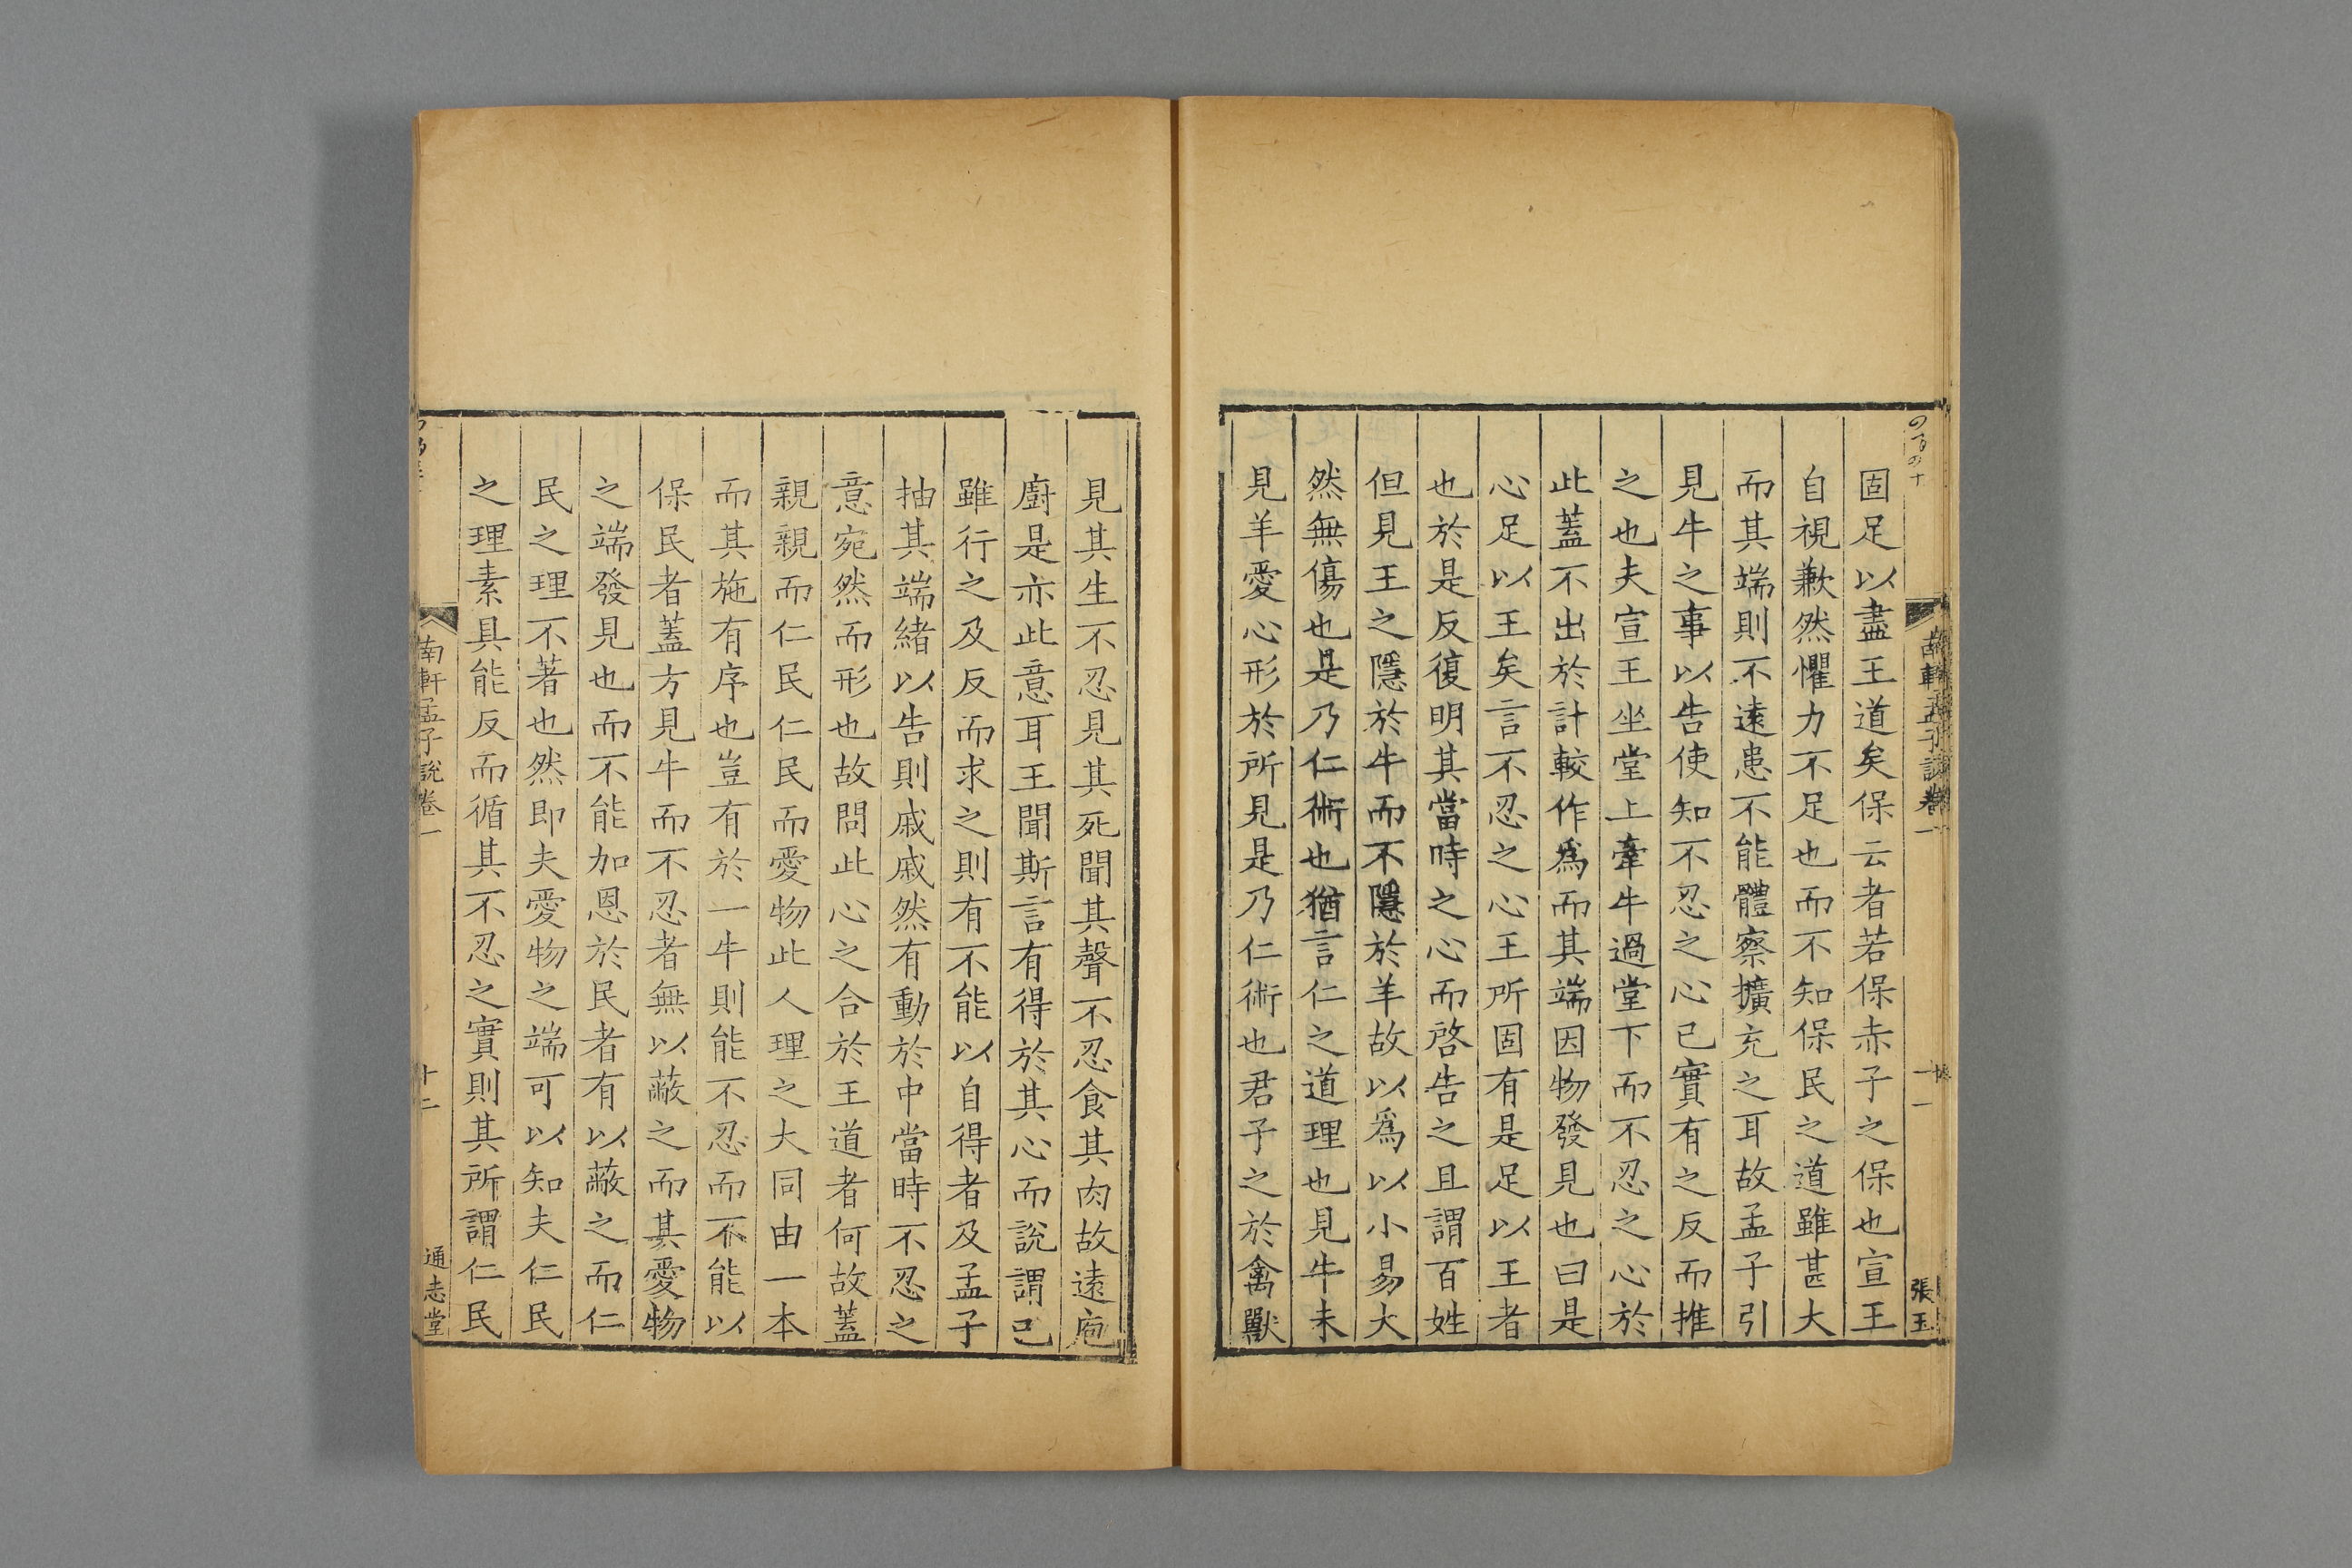 固足以盡王道矣保云者若保赤子之保也宣王
自視歉然懼力不足也而不知保民之道雖甚大
而其端則不遠患不能體察擴充之耳故孟子引
見牛之事以告使知不忍之心已實有之反而推
之也夫宣王坐堂上牽牛過堂下而不忍之心於
此蓋不出於計較作爲而其端因物發見也曰是
心足以王矣言不忍之心王所固有是足以王者
也於是反復明其當時之心而啓告之且謂百姓
但見王之隱於牛而不隱於羊故以爲以小易大
然無傷也是乃仁術也猶言仁之道理也見牛未
見羊愛心形於所見是乃仁術也君子之於禽獸
張玉
見其生不忍見其死聞其聲不忍食其肉故遠庖
廚是亦此意耳王聞斯言有得於其心而說謂已
雖行之及反而求之則有不能以自得者及孟子
抽其端緒以告則戚戚然有動於中當時不忍之
意宛然而形也故問此心之合於王道者何故蓋
親親而仁民仁民而愛物此人理之大同由一本
而其施有序也豈有於一牛則能不忍而不能以
保民者蓋方見牛而不忍者無以蔽之而其愛物
之端發見也而不能加恩於民者有以蔽之而仁
民之理不著也然即夫愛物之端可以知夫仁民
之理素具能反而循其不忍之實則其所謂仁民
南軒孟子說卷一
十二
通志堂